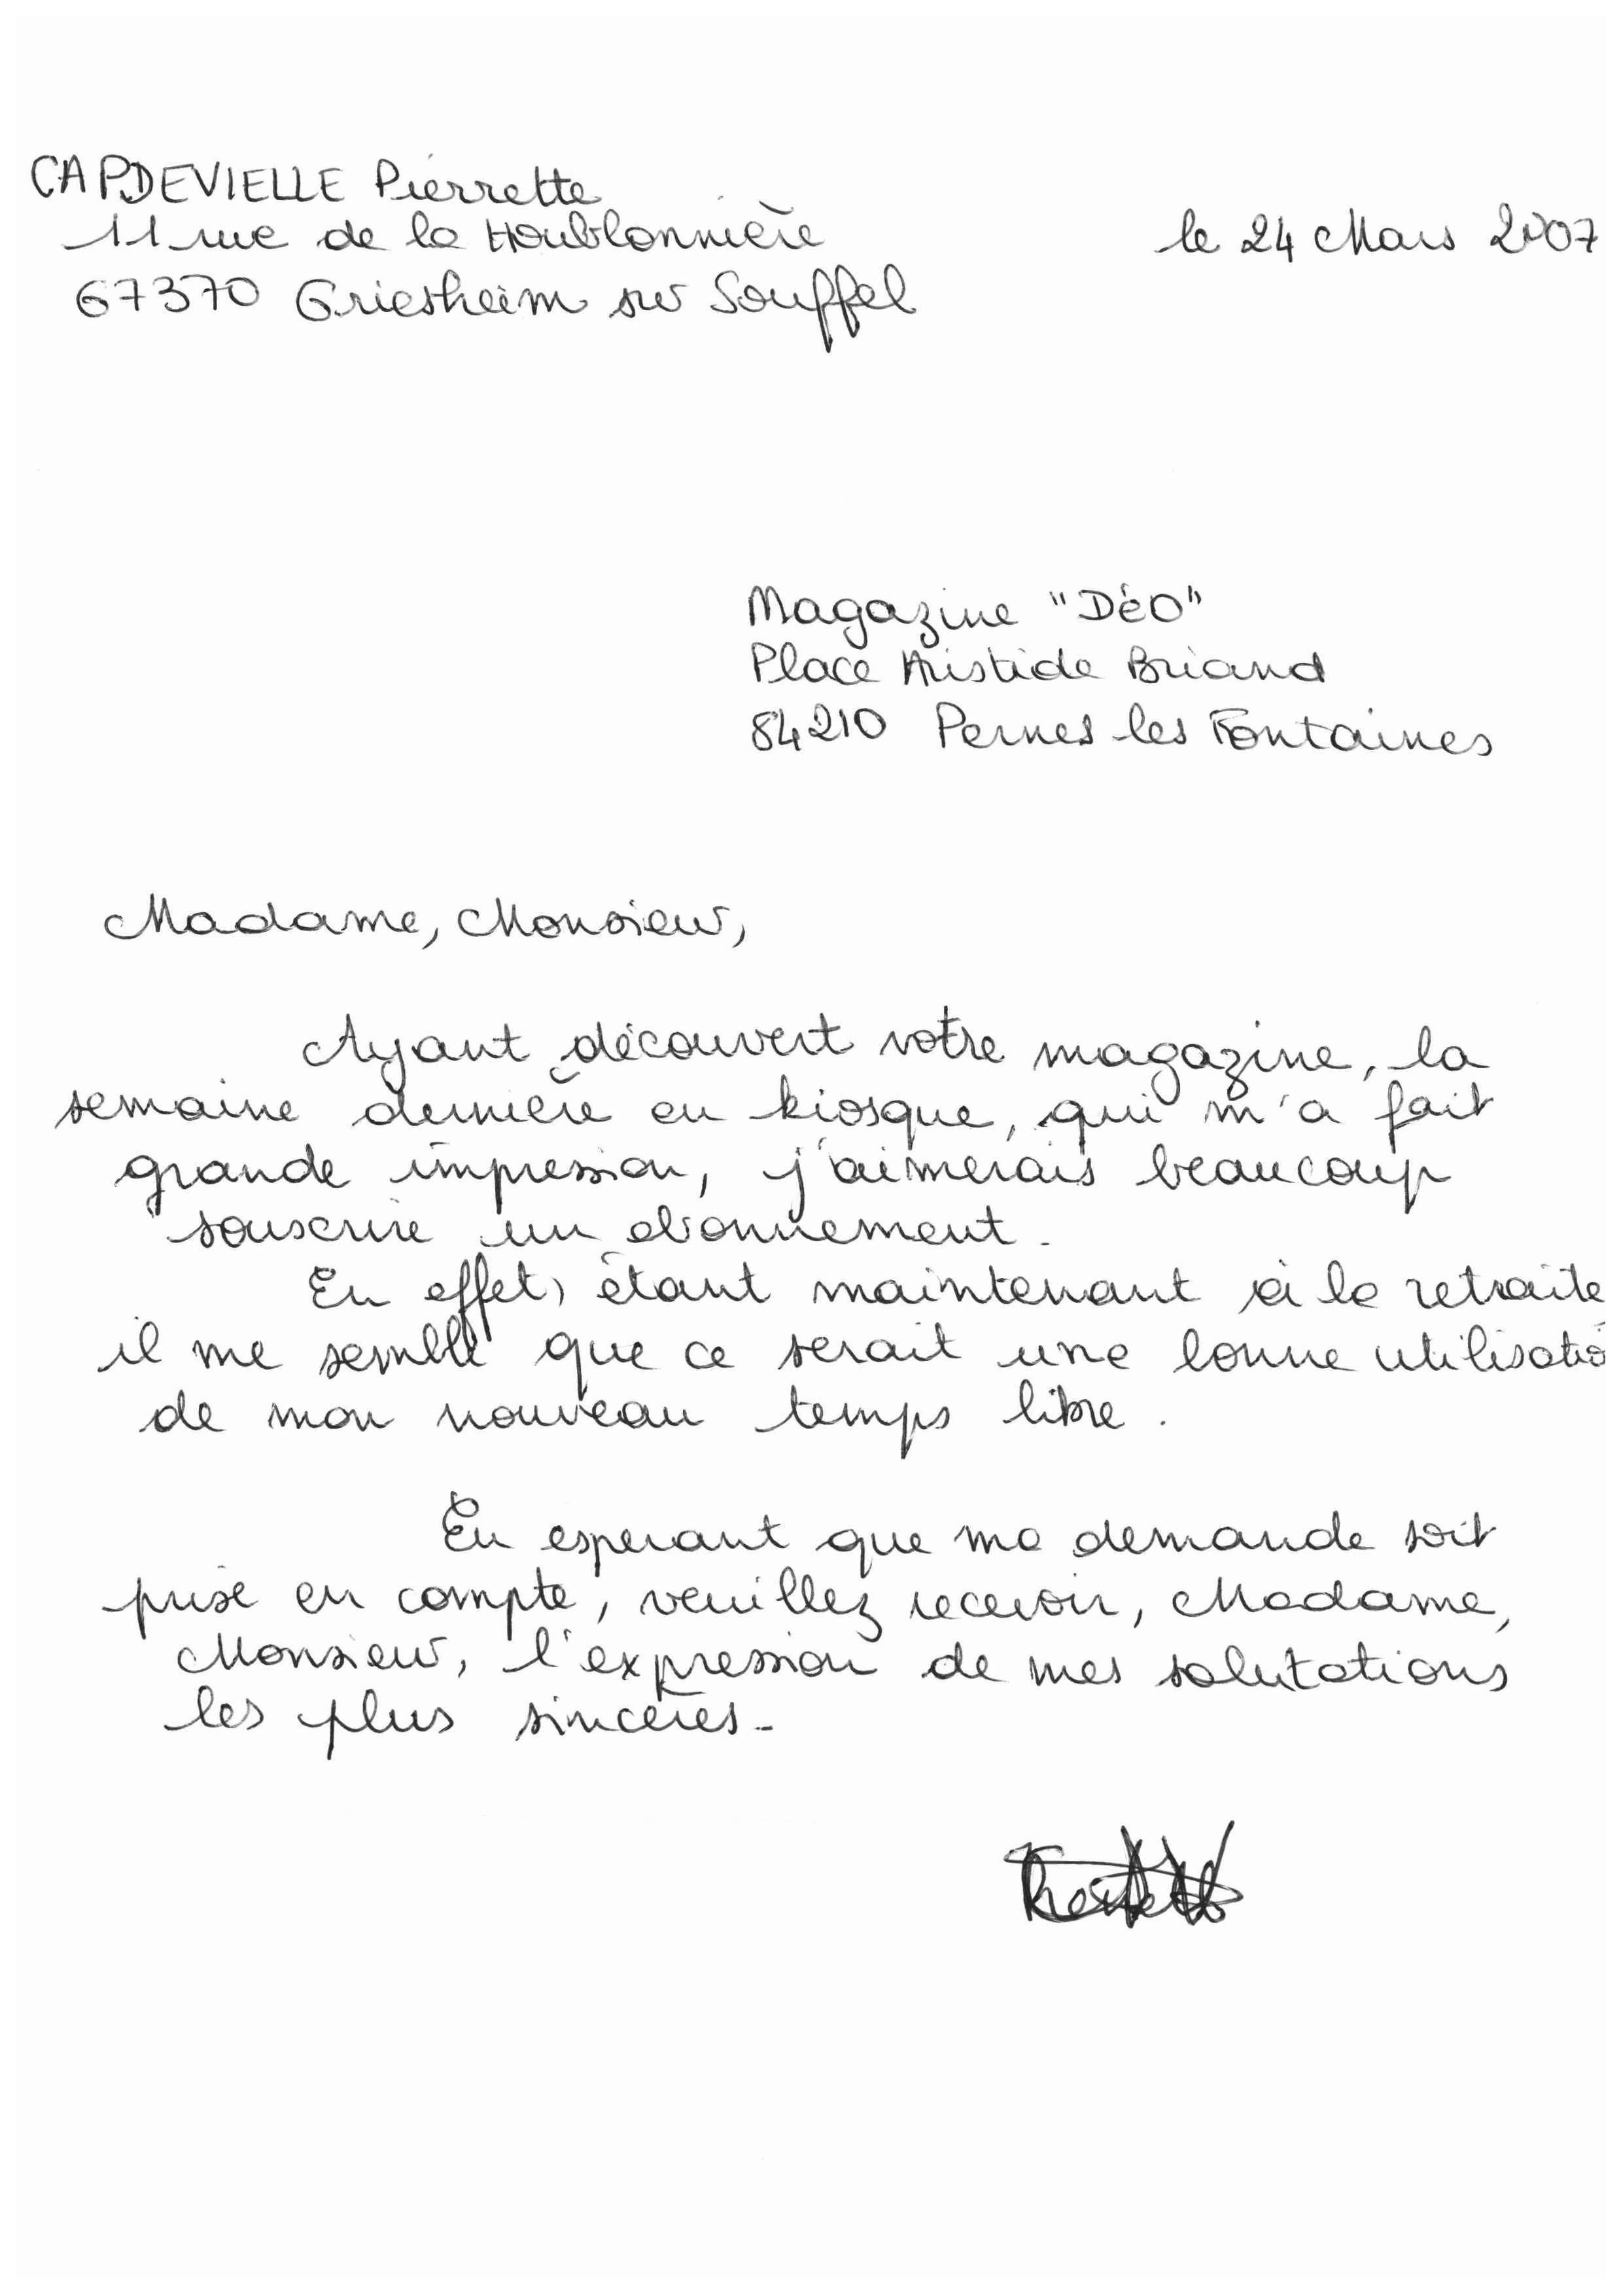 CAPDEVIELLE Pierrette
11 rue de la Houblonnière
le 24 Mars 2007
67370 Griesheim sur Souffel
Magazine "Déo"
Place Aristide Briand
84210 Pernes les Fontaines
Madame, Monsieur,
Ayant découvert votre magazine, la
semaine dernière en kiosque, qui m'a fait
grande impression, j'aimerais beaucoup
souscrire un abonnement.
En effet, étant maintenant à la retraite
il me semble que ce serait une bonne utilisatio
de mon nouveau temps libre.
En esperant que ma demande soit
prise en compte, veuillez recevoir, Madame,
Monsieur, l'expression de mes salutations
les plus sincères.